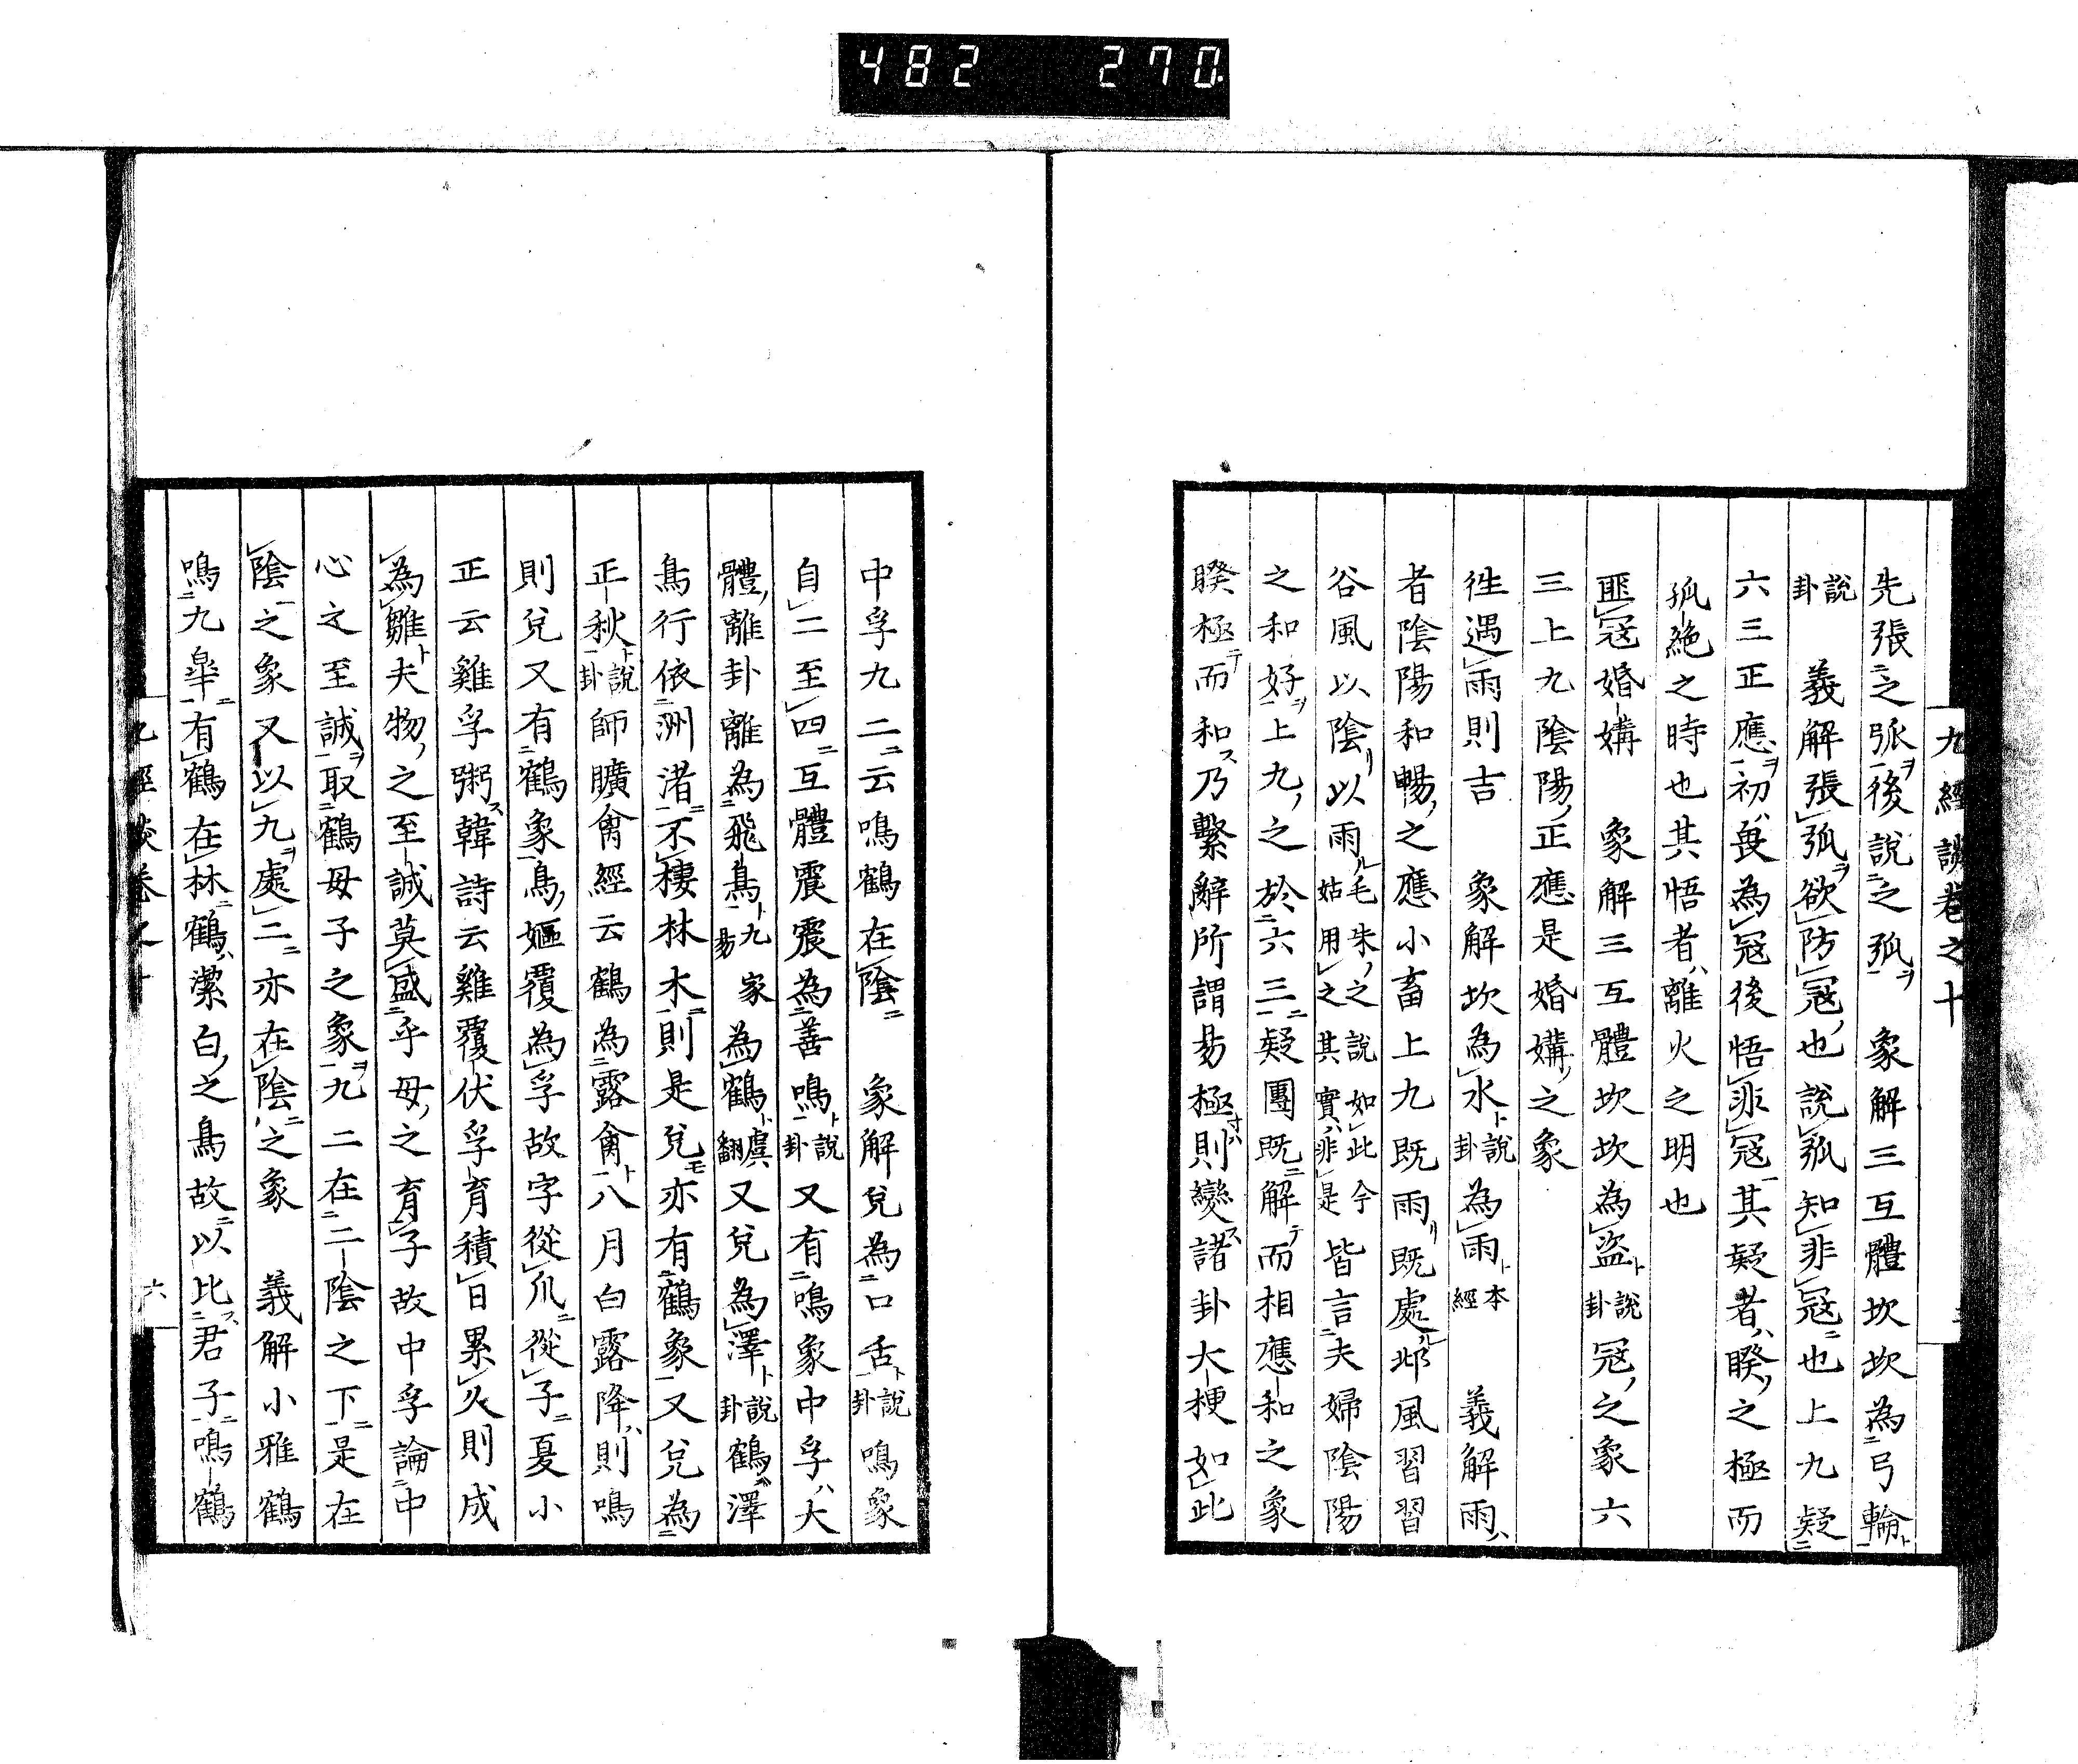 482 270
九經談卷之十
先張之弧後說之弧 象解三互體坎坎為弓輪
說卦 義解張弧欲防寇也說弧知非寇也上九疑
六三正應初畏為寇後悟非寇其疑者睽之極而
孤絶之時也其悟者離火之明也
匪寇婚媾 象解三互體坎坎為盜說卦寇之象六
三上九陰陽正應是婚媾之象
徃遇雨則吉 象解坎為水說卦為雨本經 義解雨
者陰陽和暢之應小畜上九既雨既處邶風習習
谷風以陰以雨毛朱之說如此今姑用之其實非是皆言夫婦陰陽
之和好上九之於六三疑團既解而相應和之象
睽極而和乃繫辭所謂易極則變諸卦大梗如此
中孚九二云鳴鶴在陰 象解兌為口舌說卦鳴象
自二至四互體震震為善鳴說卦又有鳴象中孚大
體離卦離為飛鳥九家易為鶴虞翻又兌為澤說卦鶴澤
鳥行依洲渚不棲林木則是兌亦有鶴象又兌為
正秋說卦師曠禽經云鶴為露禽八月白露降則鳴
則兌又有鶴象鳥嫗覆為孚故字從爪從子夏小
正云雞孚粥韓詩云雞覆伏孚育積日累久則成
為雛夫物之至誠莫盛乎母之育子故中孚論中
心之至誠取鶴母子之象九二在二陰之下是在
陰之象又以九處二亦在陰之象 義解小雅鶴
鳴九皐有鶴在林鶴潔白之鳥故以比君子鳴鶴
九經談卷之十 六